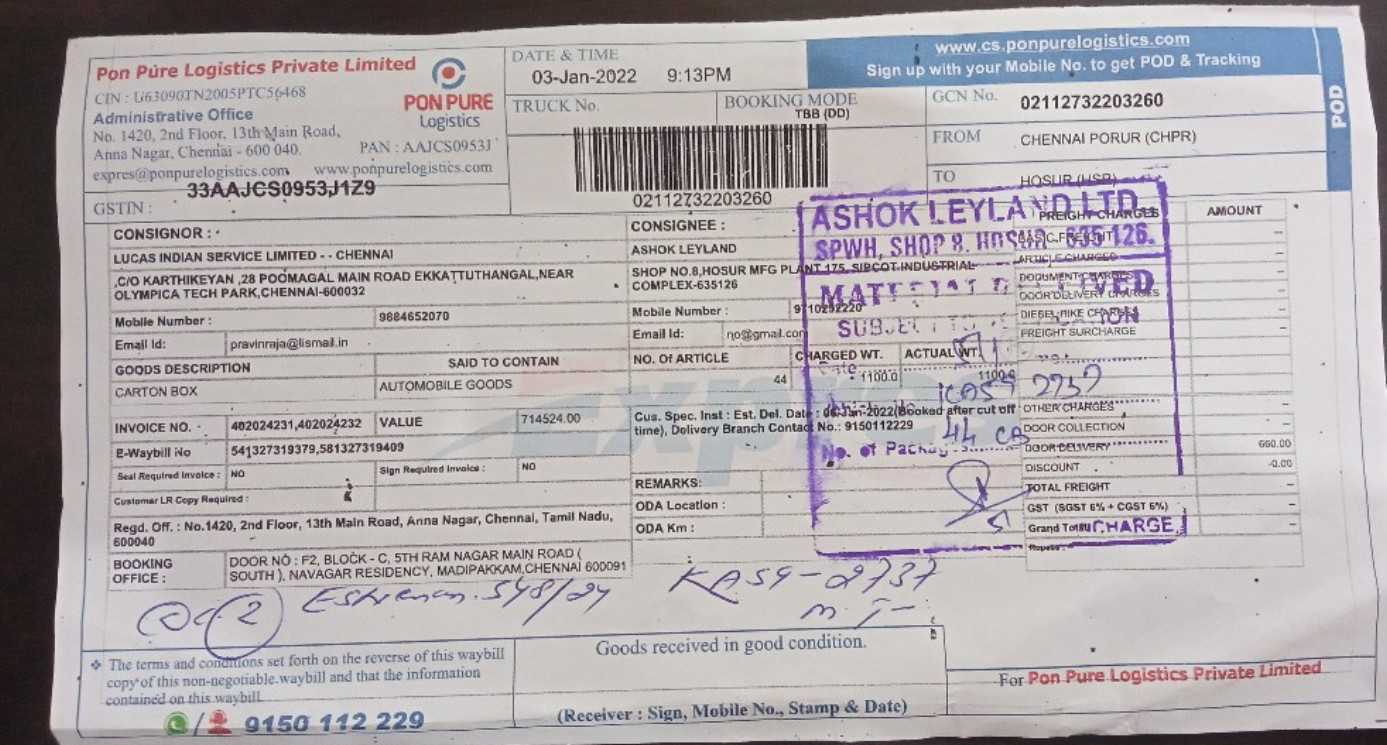 Pon Pure Logistics Private Limited
CIN : U63090TN2005PTC56468
Administrative Office
No. 1420, 2nd Floor, 13th Main Road,
Anna Nagar, Chennai - 600 040.
PAN : AAJCS0953J
expres@ponpurelogistics.com www.ponpurelogistics.com
GSTIN : 33AAJCS0953J1Z9
PON PURE
Logistics
DATE & TIME
03-Jan-2022 9:13PM
TRUCK No.
BOOKING MODE
TBB (DD)
02112732203260
www.cs.ponpurelogistics.com
Sign up with your Mobile No. to get POD & Tracking
GCN No. 02112732203260
FROM CHENNAI PORUR (CHPR)
TO HOSUR (HSR)
POD
CONSIGNOR :
LUCAS INDIAN SERVICE LIMITED - - CHENNAI
,C/O KARTHIKEYAN ,28 POOMAGAL MAIN ROAD EKKATTUTHANGAL,NEAR
OLYMPICA TECH PARK,CHENNAI-600032
Mobile Number : 9884652070
Email Id: pravinraja@lismail.in
GOODS DESCRIPTION SAID TO CONTAIN
CARTON BOX AUTOMOBILE GOODS
INVOICE NO. - 402024231,402024232 VALUE 714524.00
E-Waybill No 541327319379,581327319409
Seal Required Invoice : NO Sign Required Invoice : NO
Customer LR Copy Required :
Regd. Off. : No.1420, 2nd Floor, 13th Main Road, Anna Nagar, Chennai, Tamil Nadu,
600040
BOOKING
OFFICE :
DOOR NO : F2, BLOCK - C, 5TH RAM NAGAR MAIN ROAD (
SOUTH ), NAVAGAR RESIDENCY, MADIPAKKAM,CHENNAI 600091
CONSIGNEE :
ASHOK LEYLAND
SHOP NO.8,HOSUR MFG PLANT 175, SIPCOT INDUSTRIAL
COMPLEX-635126
Mobile Number : 9710292220
Email Id: no@gmail.com
NO. Of ARTICLE CHARGED WT. ACTUAL WT.
44 1100.0 1100.0
Cus. Spec. Inst : Est. Del. Date : 06-Jan-2022(Booked after cut off
time), Delivery Branch Contact No.: 9150112229
REMARKS:
ODA Location :
ODA Km :
FREIGHT CHARGES AMOUNT
BASIC FREIGHT
ARTICLE CHARGED
DOCUMENT CHARGES
DOOR DELIVERY CHARGES
DIESEL HIKE CHARGES
FREIGHT SURCHARGE
OTHER CHARGES
DOOR COLLECTION
DOOR DELIVERY 660.00
DISCOUNT -0.00
TOTAL FREIGHT
GST (SGST 6% + CGST 6%)
Grand Total
Rupees :
ASHOK LEYLAND LTD
SPWH, SHOP 8. HOSUR 635 126.
MATERIAL RECEIVED
SUBJECT TO
Date
No. of Packages 44 CB
CHARGE
KA59 2737
548/24
KA59-2737
❖ The terms and conditions set forth on the reverse of this waybill
copy of this non-negotiable waybill and that the information
contained on this waybill
9150 112 229
Goods received in good condition.
(Receiver : Sign, Mobile No., Stamp & Date)
For Pon Pure Logistics Private Limited